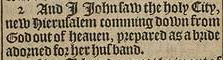 2 And I John saw the holy City,
new Hierusalem comming down from
God out of heauen, prepared as a bride
adorned for her husband.